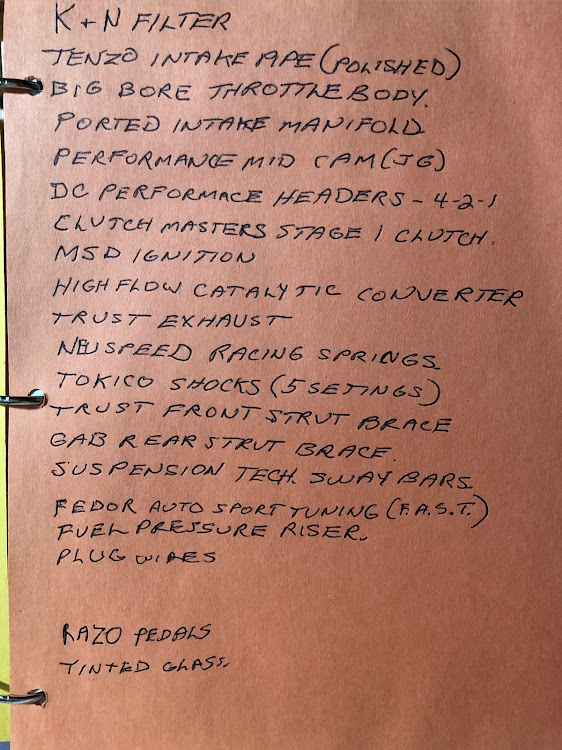 K+N FILTER
TENZO INTAKE PIPE (POLISHED)
BIG BORE THROTTLE BODY.
PORTED INTAKE MANIFOLD
PERFORMANCE MID CAM (JG)
DC PERFORMACE HEADERS - 4-2-1
CLUTCH MASTERS STAGE 1 CLUTCH.
MSD IGNITION
HIGH FLOW CATALYTIC CONVERTER
TRUST EXHAUST
NEUSPEED RACING SPRINGS.
TOKICO SHOCKS (5 SETINGS)
TRUST FRONT STRUT BRACE
GAB REAR STRUT BRACE.
SUSPENSION TECH. SWAY BARS.
FEDOR AUTO SPORT TUNING (F.A.S.T.)
FUEL PRESSURE RISER.
PLUG WIRES
RAZO PEDALS
TINTED GLASS.